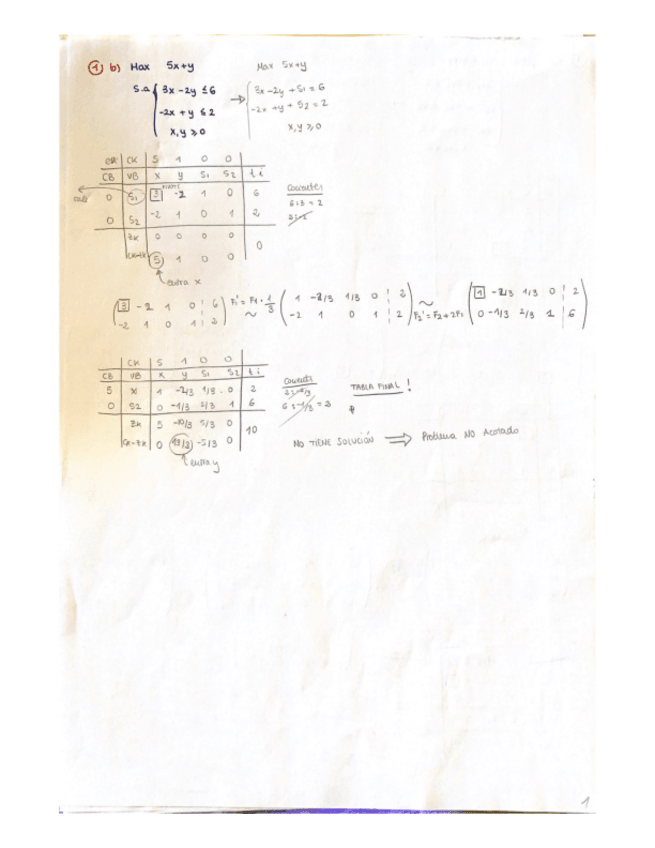 1 b) Max 5x+y
s.a { 3x-2y ≤ 6
-2x+y ≤ 2
x,y ≥ 0
Max 5x+y
→ { 3x-2y+S1 = 6
-2x+y+S2 = 2
x,y ≥ 0
CK 5 1 0 0
CB VB x y S1 S2 ti
sale 0 S1 3 -2 1 0 6
0 S2 -2 1 0 1 2
ZK 0 0 0 0 0
CK-ZK 5 1 0 0
entra x
6:3 = 2
2:-2
( 3 -2 1 0 | 6
-2 1 0 1 | 2 )
F1' = F1 · 1/3 ~
( 1 -2/3 1/3 0 | 2
-2 1 0 1 | 2 )
~ F2' = F2+2F1
( 1 -2/3 1/3 0 | 2
0 -1/3 2/3 1 | 6 )
CK 5 1 0 0
CB VB x y S1 S2 ti
5 x 1 -2/3 1/3 0 2
0 S2 0 -1/3 2/3 1 6
ZK 5 -10/3 5/3 0 10
CK-ZK 0 13/3 -5/3 0
entra y
2:-2/3
TABLA FINAL!
NO TIENE SOLUCIÓN ⇒ Problema NO Acotado
1